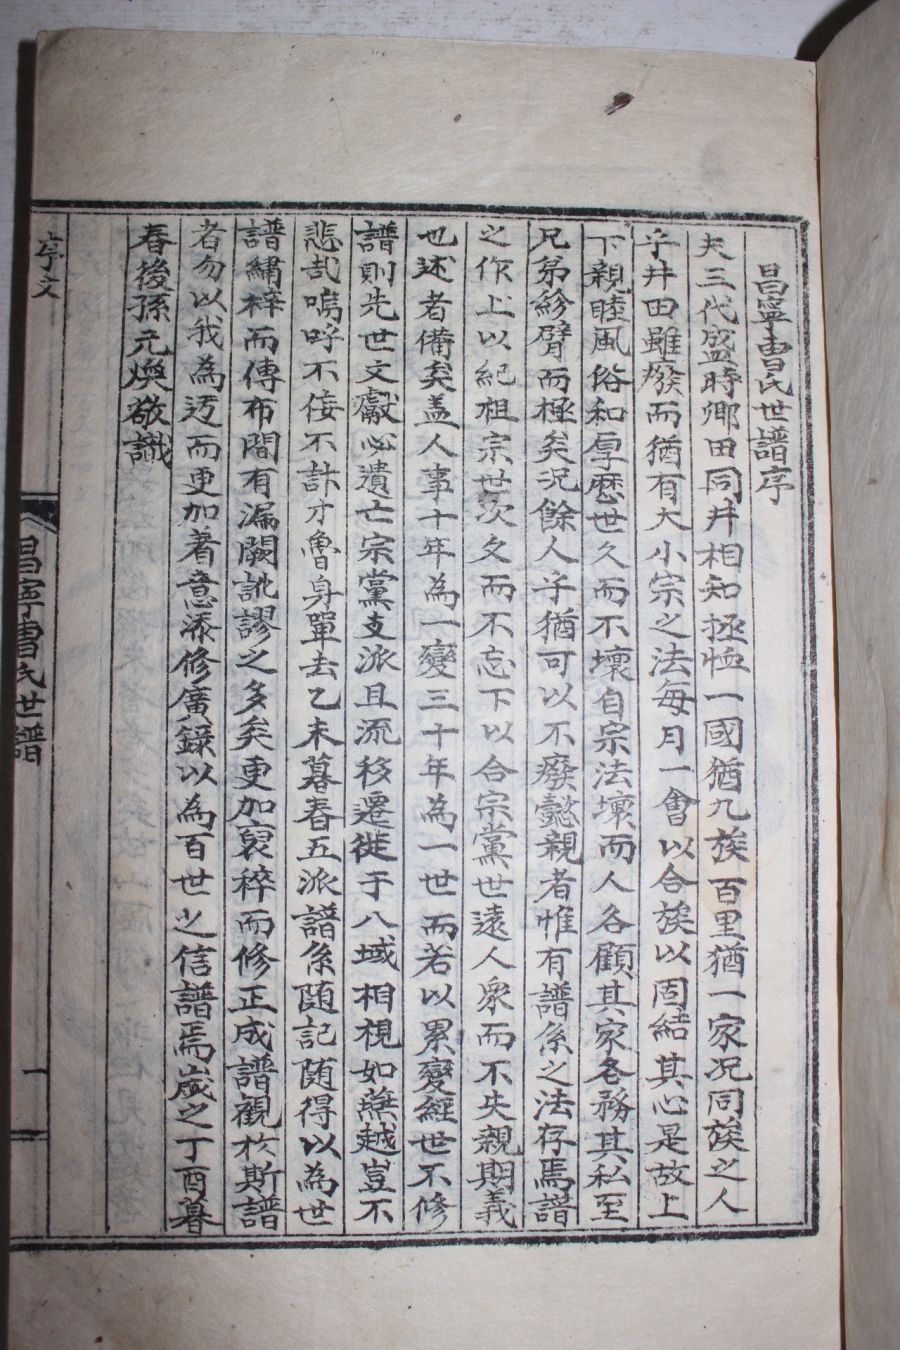 昌寧曺氏世譜序
夫三代盛時鄕田同井相知拯恤一國猶九族百里猶一家况同族之人
乎井田雖廢而猶有大小宗之法每月一會以合族以固結其心是故上
下親睦風俗和厚歷世久而不壞自宗法壞而人各顧其家各務其私至
兄弟紾臂而極矣况餘人乎猶可以不廢懿親者惟有譜系之法存焉譜
之作上以紀祖宗世次久而不忘下以合宗黨世遠人衆而不失親期義
也述者備矣盖人事十年為一變三十年為一世而若以累變經世不修
譜則先世文獻必遺亡宗黨支派且流移遷徙于八域相視如燕越豈不
悲哉嗚呼不佞不計才魯身單去乙未暮春五派譜系随記随得以為世
譜繡梓而傳布間有漏闕訛謬之多矣更加裒稡而修正成譜觀於斯譜
者勿以我為迃而更加着意添修廣錄以為百世之信譜焉歲之丁酉暮
春後孫元煥敬識
序文
昌寧曺氏世譜
一